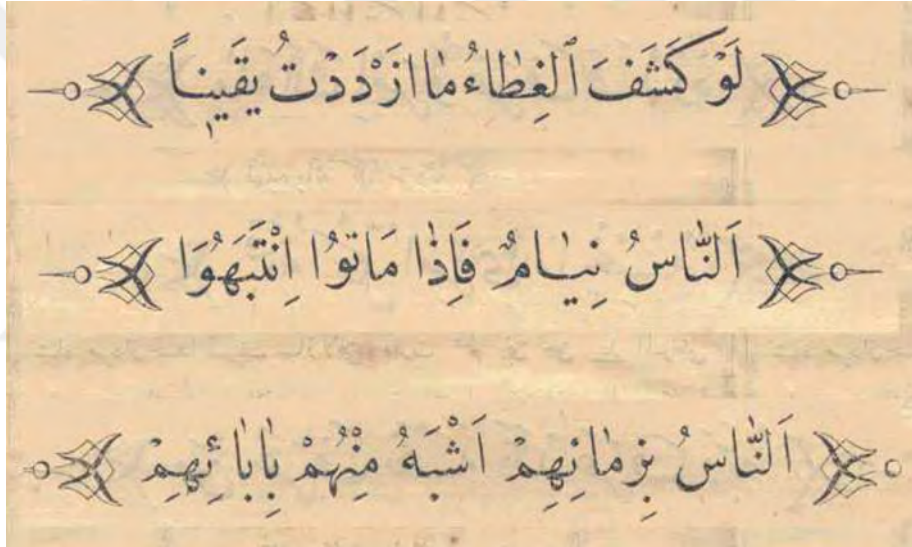 لَوْ كَشَفَ ٱلْغِطَاءُ مَا ازْدَدْتُ يَقِينًا
اَلنَّاسُ نِيَامٌ فَاِذَا مَاتُوا اِنْتَبَهُوَا
اَلنَّاسُ بِزِمَانِهِمْ اَشْبَهُ مِنْهُمْ بِاٰبَائِهِمْ